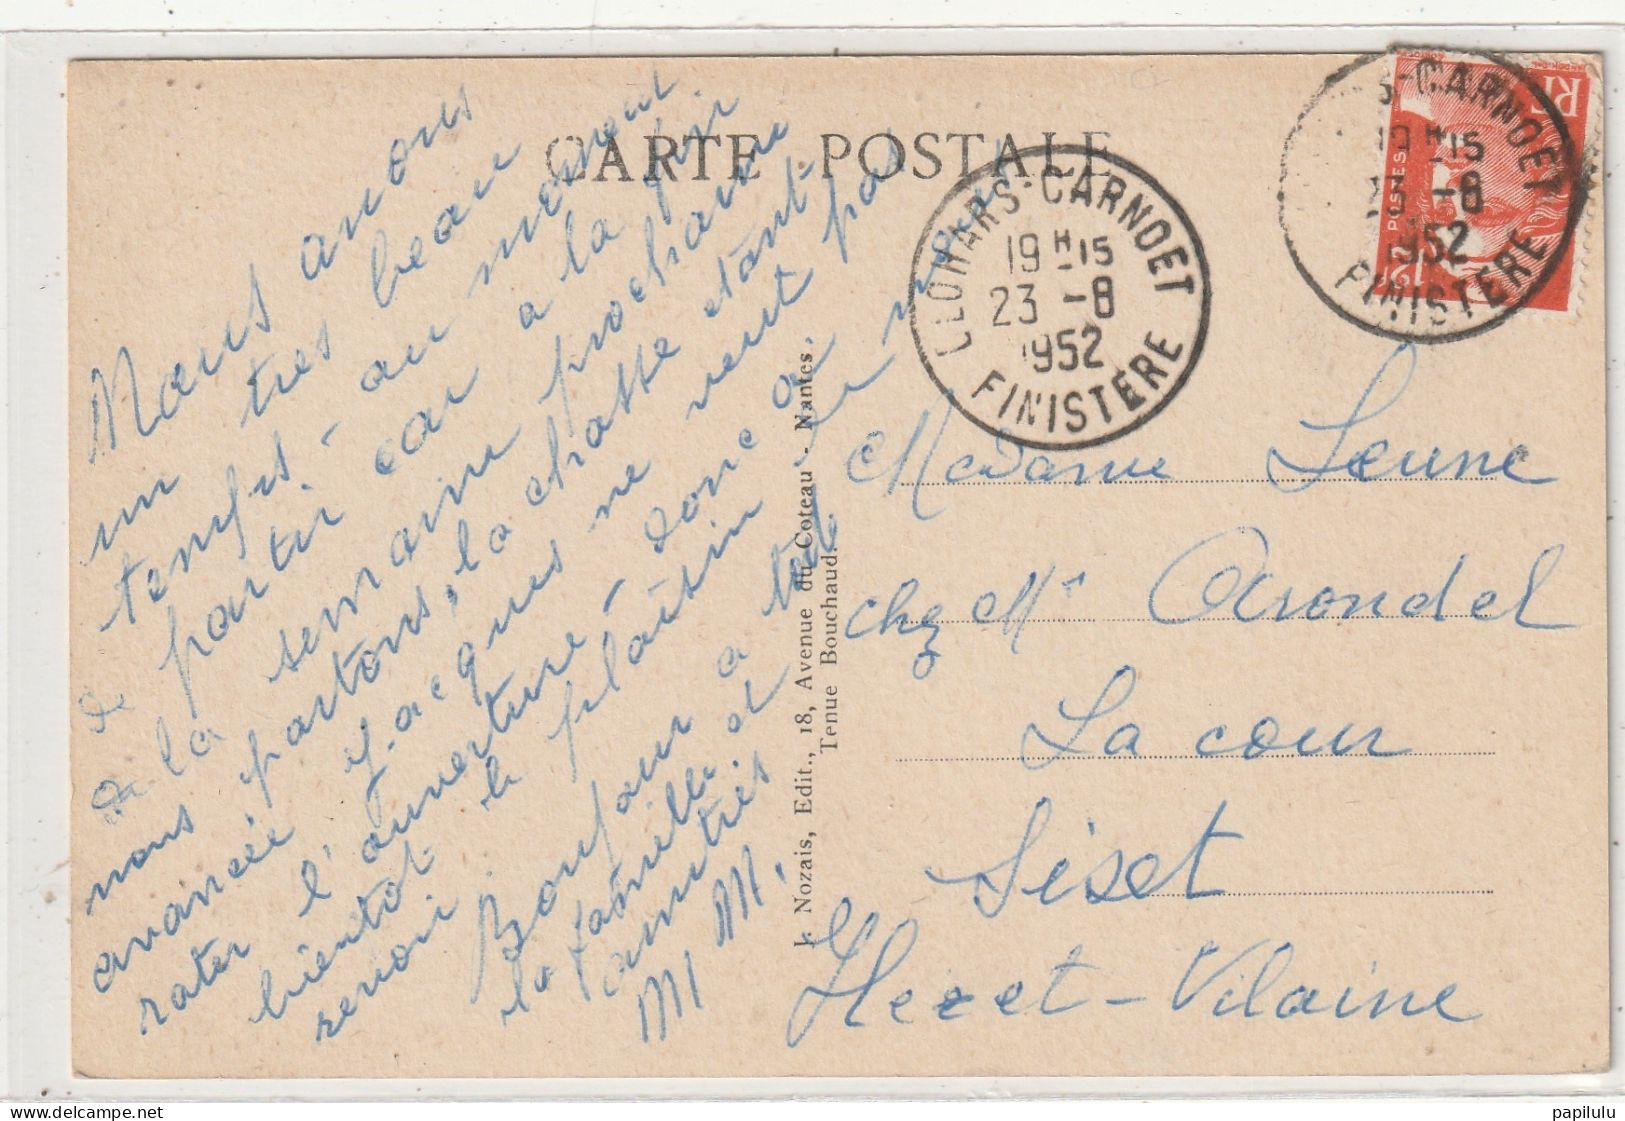 CARTE POSTALE
Nous avons
un très beau
temps - au moment
de partir car a la fin
de la semaine prochaine
nous partons, la chasse étant
avancée Jacques ne veut pas
rater l'ouverture - donc a
bientot le plaisir de vous
revoir
Bonjour a ted
la famille et
amitiés
M M.
J. Nozais, Edit., 18, Avenue du Coteau - Nantes.
Tenue Bouchaud.
CLOHARS-CARNOET
19 H 15
23 - 8
1952
FINISTÈRE
S-CARNOET
19 H 15
23 - 8
1952
FINISTÈRE
RF
POSTES
12F
Madame Leune
chez Mr Arondel
La cour
Liset
Ile et-Vilaine
papilulu